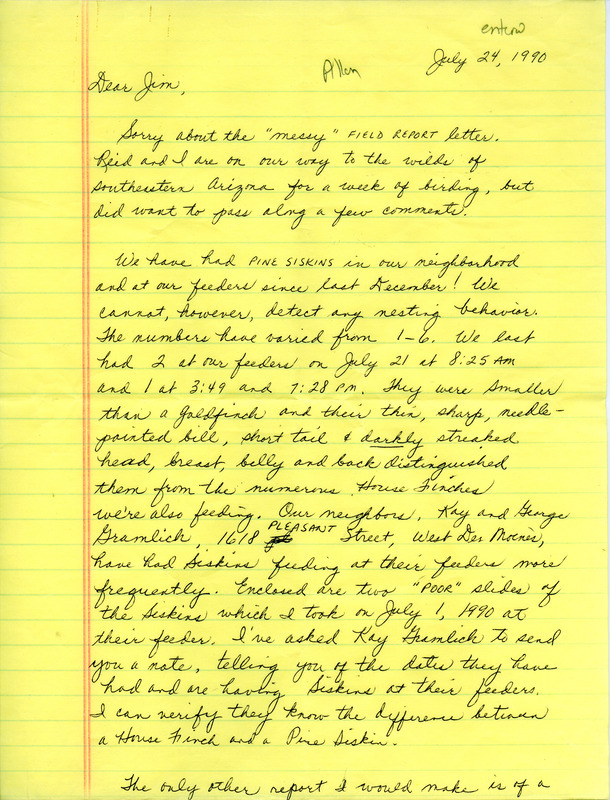 entered
July 24, 1990
Allen
Dear Jim,
Sorry about the "messy" FIELD REPORT letter.
Reid and I are on our way to the wilds of
southeastern Arizona for a week of birding, but
did want to pass along a few comments.
We have had PINE SISKINS in our neighborhood
and at our feeders since last December! We
cannot, however, detect any nesting behavior.
The numbers have varied from 1-6. We last
had 2 at our feeders on July 21 at 8:25 AM
and 1 at 3:49 and 7:28 PM. They were smaller
than a Goldfinch and their thin, sharp, needle-
pointed bill, short tail & darkly streaked
head, breast, belly and back distinguished
them from the numerous House Finches
we're also feeding. Our neighbors, Kay and George
Gramlich, 1618 PLEASANT Street, West Des Moines,
have had Siskins feeding at their feeders more
frequently. Enclosed are two "POOR" slides of
the Siskins which I took on July 1, 1990 at
their feeder. I've asked Kay Gramlich to send
you a note, telling you of the dates they have
had and are having Siskins at their feeders.
I can verify they know the difference between
a House Finch and a Pine Siskin.
The only other report I would make is of a